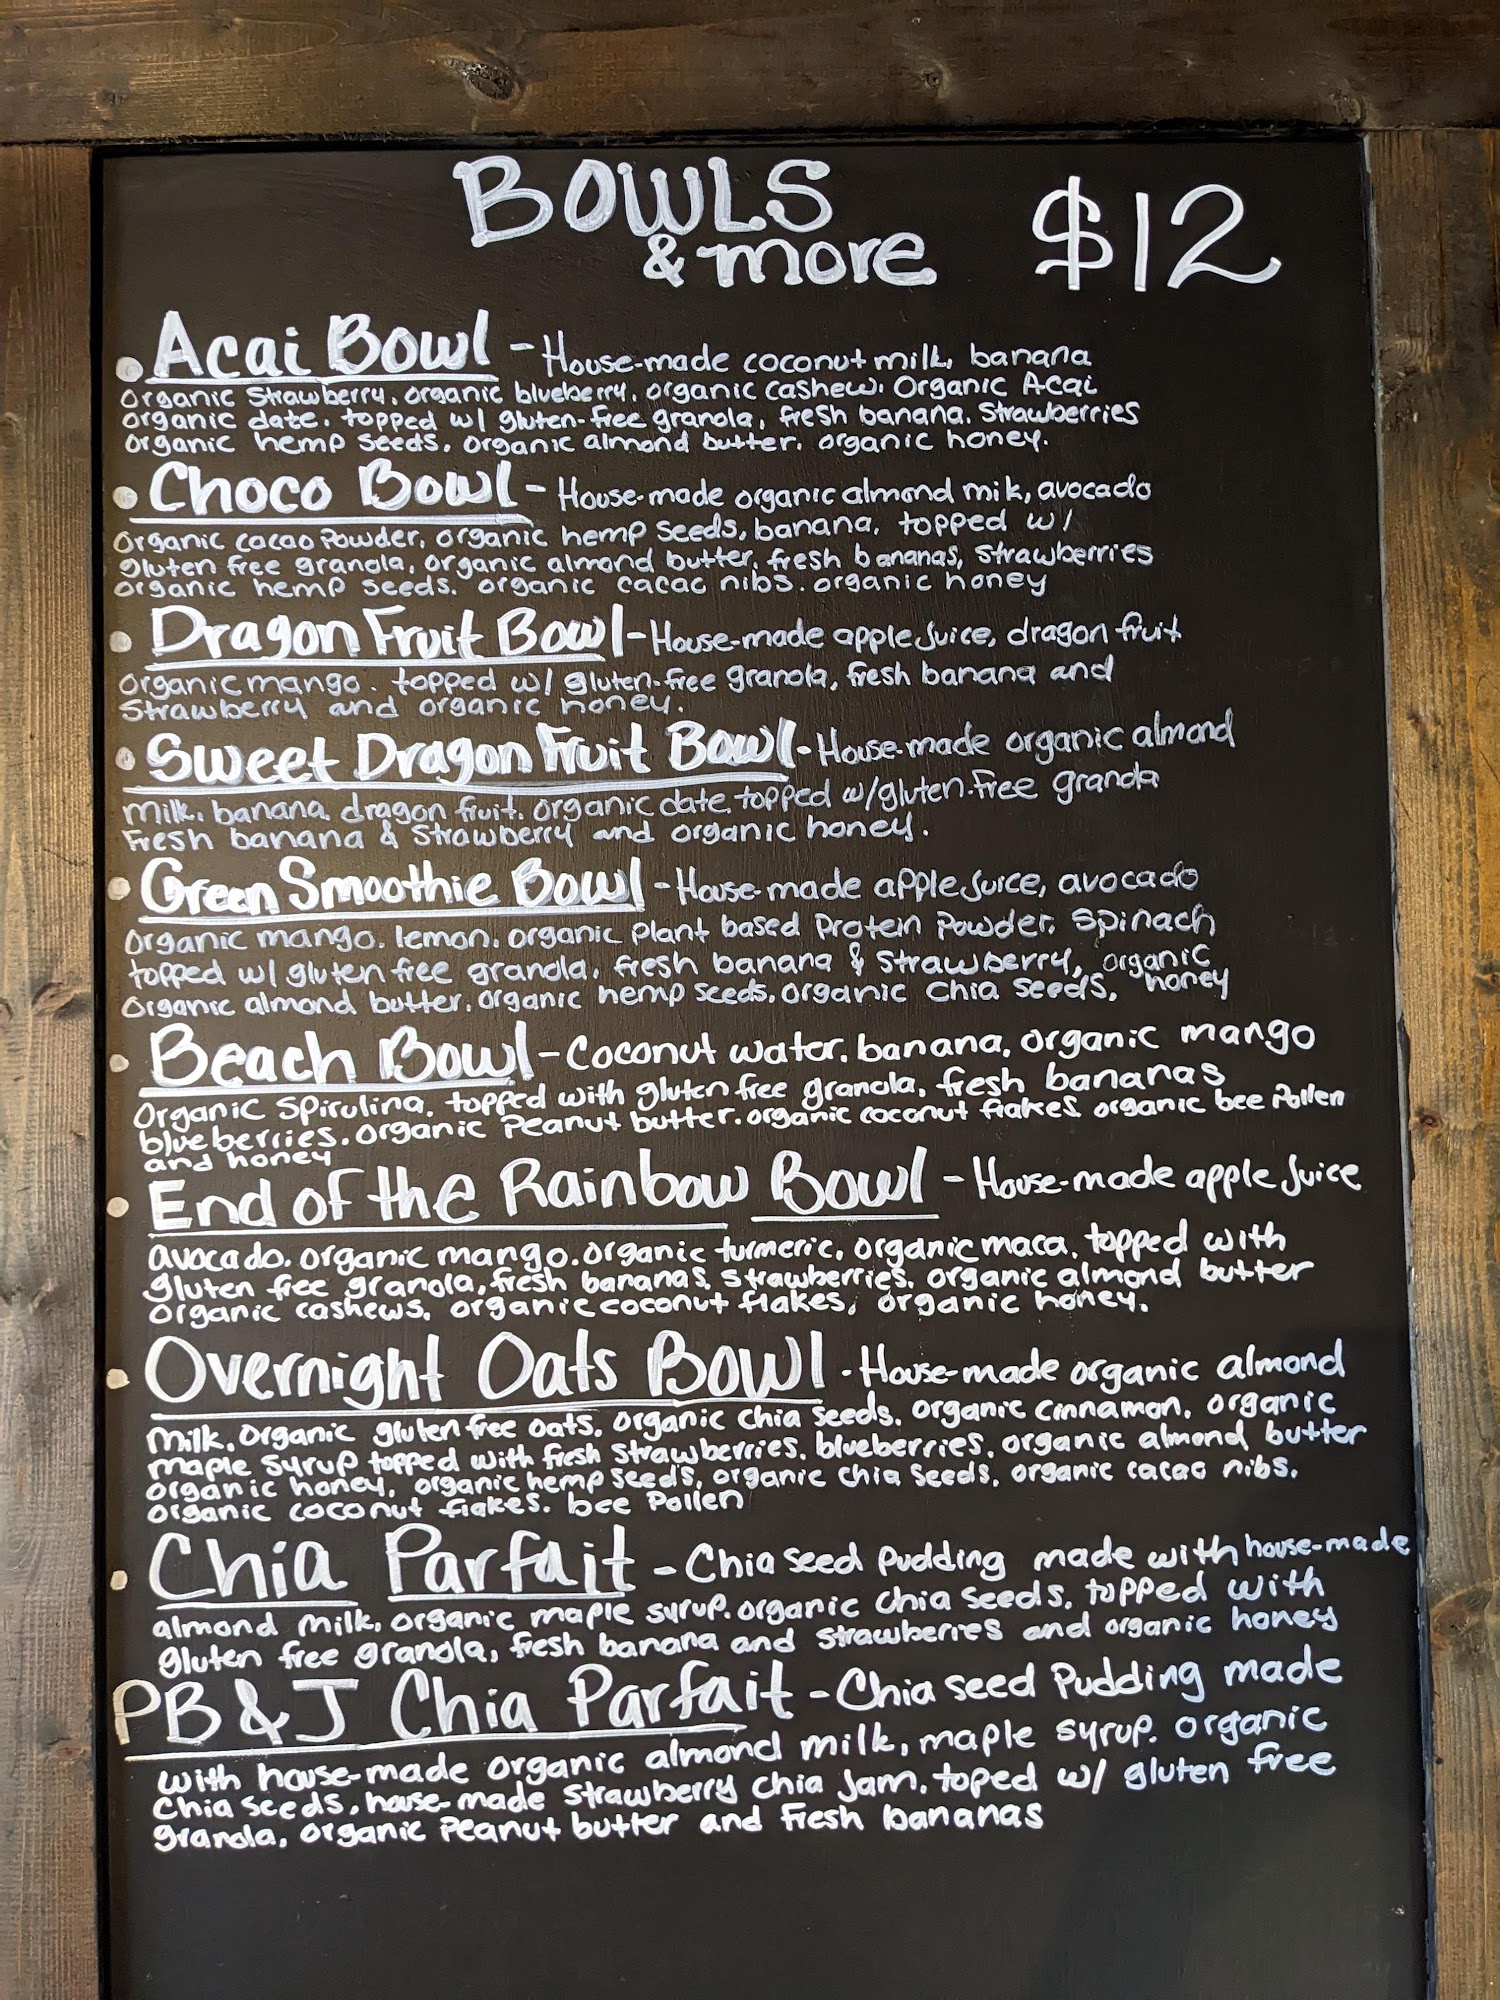 BOWLS
& more
$12
Acai Bowl - House-made coconut milk, banana
organic strawberry, organic blueberry, organic cashew. Organic Acai
organic date, topped w/ gluten-free granola, fresh banana, strawberries
organic hemp seeds, organic almond butter, organic honey.
Choco Bowl - House-made organic almond milk, avocado
organic cacao powder, organic hemp seeds, banana, topped w/
gluten free granola, organic almond butter, fresh bananas, strawberries
organic hemp seeds, organic cacao nibs, organic honey
Dragon Fruit Bowl - House-made apple juice, dragon fruit
organic mango, topped w/ gluten-free granola, fresh banana and
strawberry and organic honey.
Sweet Dragon Fruit Bowl - House-made organic almond
milk, banana, dragon fruit, organic date, topped w/ gluten-free granola
fresh banana & strawberry and organic honey.
Green Smoothie Bowl - House-made apple juice, avocado
organic mango, lemon, organic plant based protein powder, spinach
topped w/ gluten free granola, fresh banana & strawberry, organic honey
organic almond butter, organic hemp seeds, organic chia seeds,
Beach Bowl - Coconut water, banana, organic mango
organic spirulina, topped with gluten free granola, fresh bananas
blueberries, organic peanut butter, organic coconut flakes organic bee pollen
and honey
End of the Rainbow Bowl - House-made apple juice
avocado, organic mango, organic turmeric, organic maca, topped with
gluten free granola, fresh bananas, strawberries, organic almond butter
organic cashews, organic coconut flakes, organic honey.
Overnight Oats Bowl - House-made organic almond
milk, organic gluten free oats, organic chia seeds, organic cinnamon, organic
maple syrup topped with fresh strawberries, blueberries, organic almond butter
organic honey, organic hemp seeds, organic chia seeds, organic cacao nibs,
organic coconut flakes, bee pollen
Chia Parfait - Chia seed pudding made with house-made
almond milk, organic maple syrup, organic chia seeds, topped with
gluten free granola, fresh banana and strawberries and organic honey
PB & J Chia Parfait - Chia seed pudding made
with house-made organic almond milk, maple syrup, organic
chia seeds, house-made strawberry chia jam, toped w/ gluten free
granola, organic peanut butter and fresh bananas